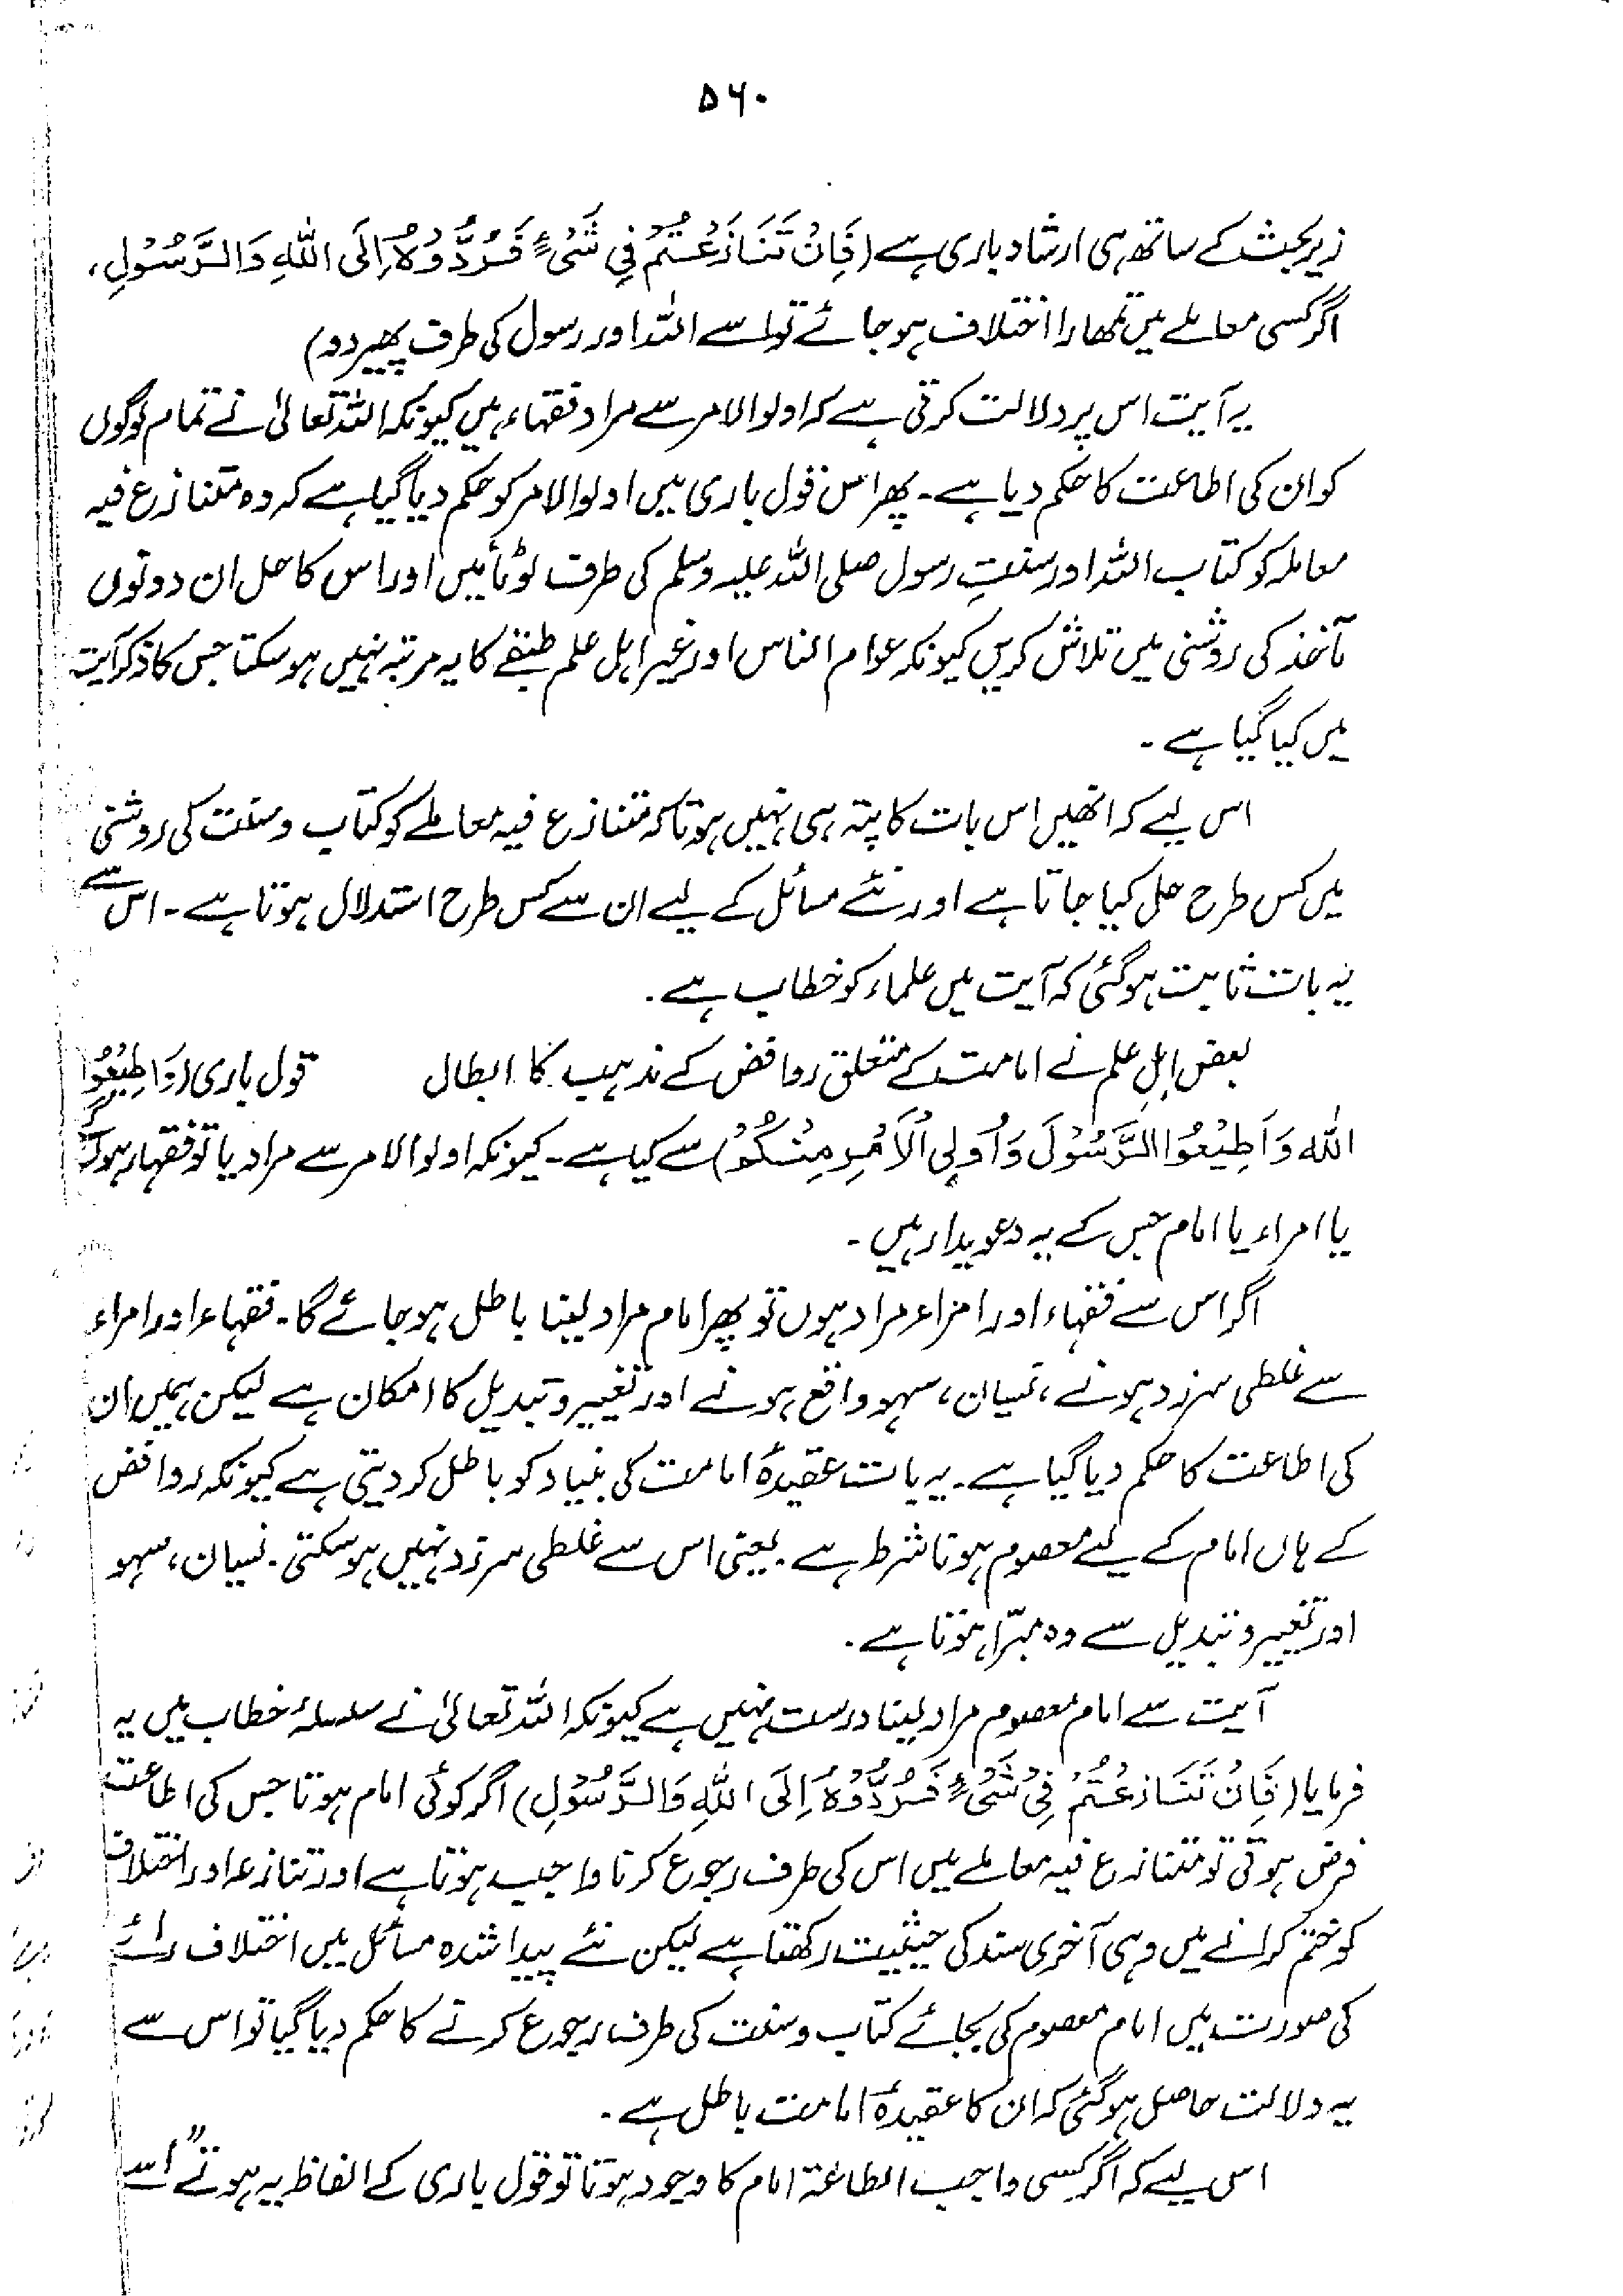 ۵۶۰
زیر بحث کے ساتھ ہی ارشاد باری ہے (فَاِنْ تَنَازَعْتُمْ فِیْ شَیْءٍ فَرُدُّوْہُ اِلَی اللّٰہِ وَالرَّسُوْلِ،
اگر کسی معاملے میں تمھارا اختلاف ہو جائے تو اسے اللہ اور رسول کی طرف پھیر دو)
یہ آیت اس پر دلالت کرتی ہے کہ اولوالامر سے مراد فقہاء ہیں کیونکہ اللہ تعالیٰ نے تمام لوگوں
کو ان کی اطاعت کا حکم دیا ہے۔ پھر اس قول باری میں اولوالامر کو حکم دیا گیا ہے کہ وہ متنازع فیہ
معاملہ کو کتاب اللہ اور سنتِ رسول صلی اللہ علیہ وسلم کی طرف لوٹائیں اور اس کا حل ان دونوں
مآخذ کی روشنی میں تلاش کریں کیونکہ عوام الناس اور غیر اہل علم طبقے کا یہ مرتبہ نہیں ہو سکتا جس کا ذکر آیت
میں کیا گیا ہے۔
اس لیے کہ انھیں اس بات کا پتہ ہی نہیں ہوتا کہ متنازع فیہ معاملے کو کتاب و سنت کی روشنی
میں کس طرح حل کیا جاتا ہے اور نئے مسائل کے لیے ان سے کس طرح استدلال ہوتا ہے۔ اس سے
یہ بات ثابت ہو گئی کہ آیت میں علماء کو خطاب ہے۔
بعض اہلِ علم نے امامت کے متعلق روافض کے مذہب کا ابطال قول باری (وَاَطِیْعُوا
اللّٰہَ وَاَطِیْعُوا الرَّسُوْلَ وَاُولِی الْاَمْرِ مِنْکُمْ) سے کیا ہے۔ کیونکہ اولوالامر سے مراد یا تو فقہاء ہوں گے
یا امراء یا امام جس کے یہ دعویدار ہیں۔
اگر اس سے فقہاء اور امراء مراد ہوں تو پھر امام مراد لینا باطل ہو جائے گا۔ فقہاء اور امراء
سے غلطی سرزد ہونے، نسیان، سہو واقع ہونے اور تغییر و تبدیل کا امکان ہے لیکن ہمیں ان
کی اطاعت کا حکم دیا گیا ہے۔ یہ بات عقیدۂ امامت کی بنیاد کو باطل کر دیتی ہے کیونکہ روافض
کے ہاں امام کے لیے معصوم ہونا شرط ہے۔ یعنی اس سے غلطی سرزد نہیں ہو سکتی۔ نسیان، سہو
اور تغییر و تبدیل سے وہ مبرّا ہوتا ہے۔
آیت سے امام معصوم مراد لینا درست نہیں ہے کیونکہ اللہ تعالیٰ نے سلسلۂ خطاب میں یہ
فرمایا (فَاِنْ تَنَازَعْتُمْ فِیْ شَیْءٍ فَرُدُّوْہُ اِلَی اللّٰہِ وَالرَّسُوْلِ) اگر کوئی امام ہوتا جس کی اطاعت
فرض ہوتی تو متنازع فیہ معاملے میں اس کی طرف رجوع کرنا واجب ہوتا ہے اور تنازعہ اور اختلاف
کو ختم کرانے میں وہی آخری سند کی حیثیت رکھتا ہے لیکن نئے پیدا شدہ مسائل میں اختلاف رائے
کی صورت میں امام معصوم کی بجائے کتاب و سنت کی طرف رجوع کرنے کا حکم دیا گیا تو اس سے
یہ دلالت حاصل ہو گئی کہ ان کا عقیدۂ امامت باطل ہے۔
اس لیے کہ اگر کسی واجب الطاعۃ امام کا وجود ہوتا تو قول باری کے الفاظ یہ ہوتے "اسے